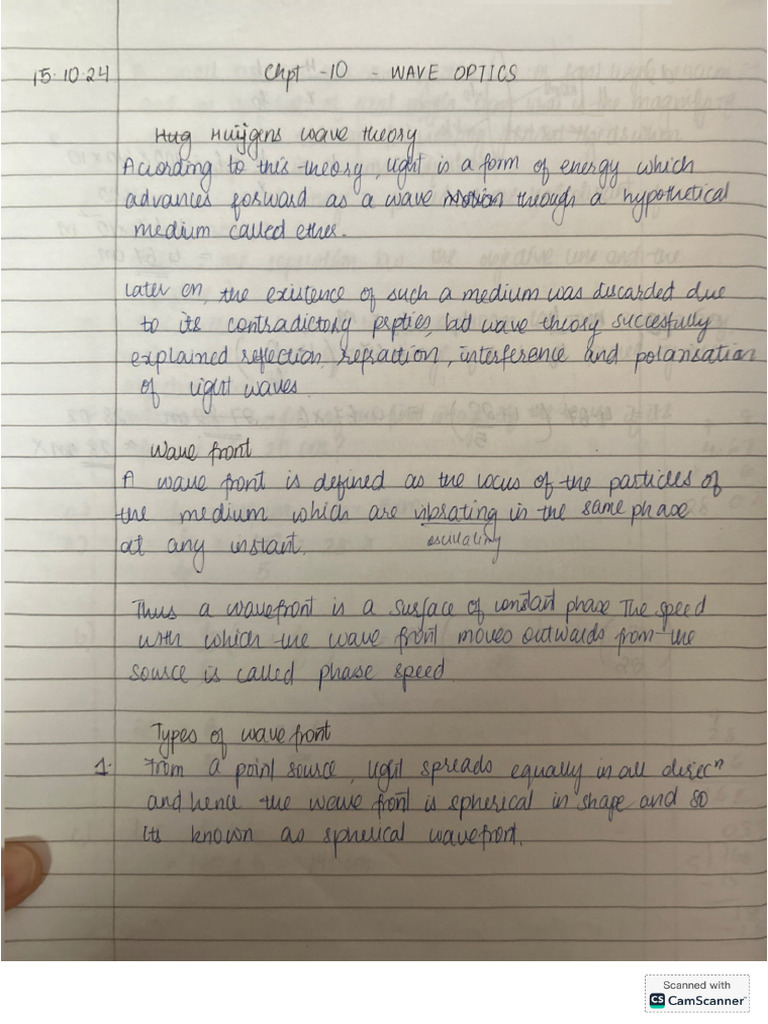 15.10.24 Chpt -10 - WAVE OPTICS
Hug Huijgens wave theory
According to this theory, light is a form of energy which
advances forward as a wave motion through a hypothetical
medium called ether.
Later on, the existence of such a medium was discarded due
to its contradictory pepties, but wave theory succesfully
explained reflection, refraction, interference and polarisation
of light waves.
Wave front
A wave front is defined as the locus of the particles of
the medium which are vibrating in the same phase
at any instant. oscillating
Thus a wavefront is a surface of constant phase The speed
with which the wave front moves outwards from the
source is called phase speed
Types of wave front
1. From a point source, light spreads equally in all direcⁿ
and hence the wave front is spherical in shape and so
its known as spherical wavefront.
Scanned with
CS CamScanner